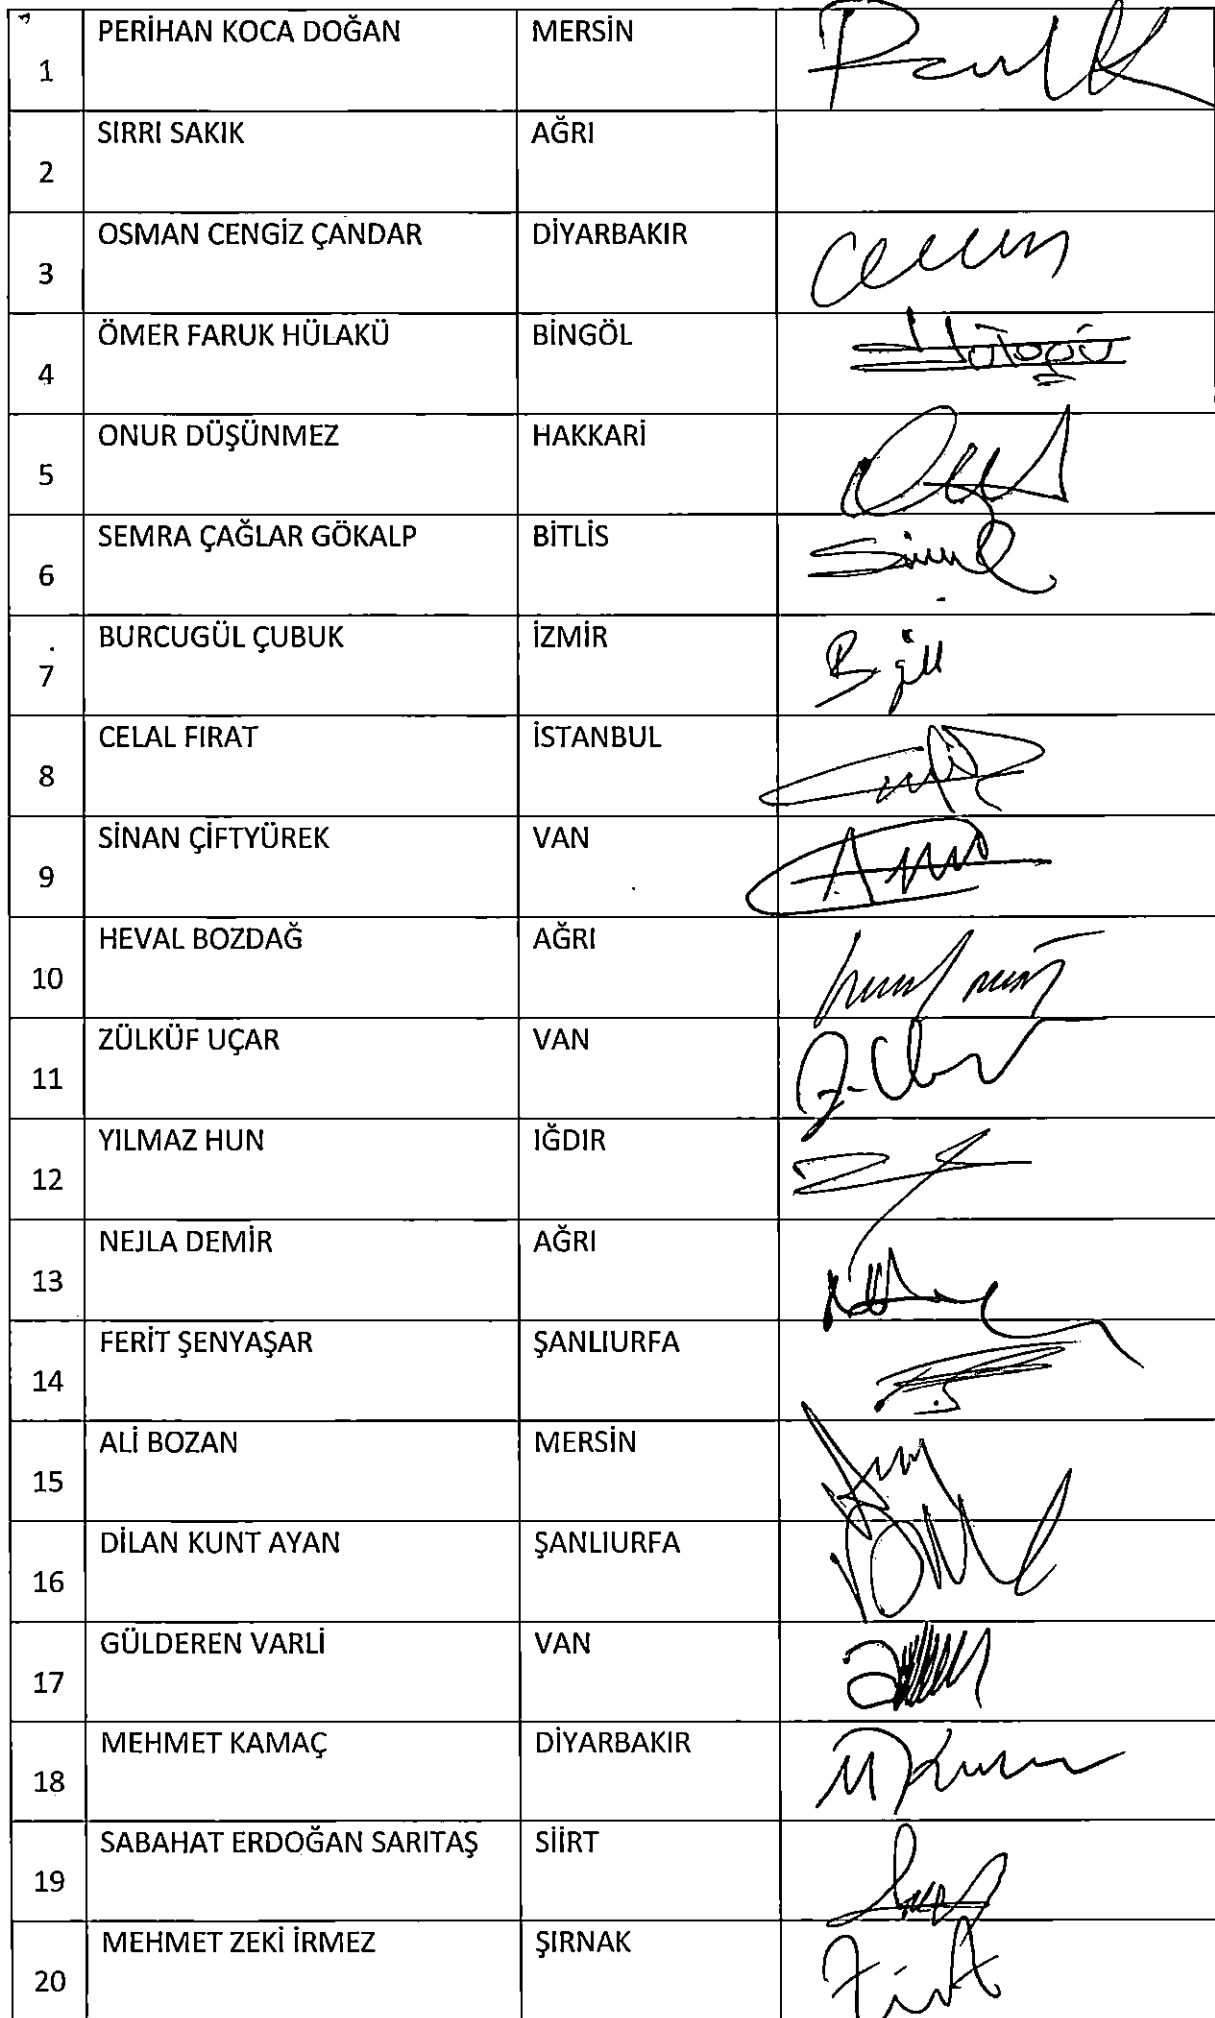 1 PERİHAN KOCA DOĞAN MERSİN
2 SIRRI SAKIK AĞRI
3 OSMAN CENGİZ ÇANDAR DİYARBAKIR
4 ÖMER FARUK HÜLAKÜ BİNGÖL
5 ONUR DÜŞÜNMEZ HAKKARİ
6 SEMRA ÇAĞLAR GÖKALP BİTLİS
7 BURCUGÜL ÇUBUK İZMİR
8 CELAL FIRAT İSTANBUL
9 SİNAN ÇİFTYÜREK VAN
10 HEVAL BOZDAĞ AĞRI
11 ZÜLKÜF UÇAR VAN
12 YILMAZ HUN IĞDIR
13 NEJLA DEMİR AĞRI
14 FERİT ŞENYAŞAR ŞANLIURFA
15 ALİ BOZAN MERSİN
16 DİLAN KUNT AYAN ŞANLIURFA
17 GÜLDEREN VARLİ VAN
18 MEHMET KAMAÇ DİYARBAKIR
19 SABAHAT ERDOĞAN SARITAŞ SİİRT
20 MEHMET ZEKİ İRMEZ ŞIRNAK